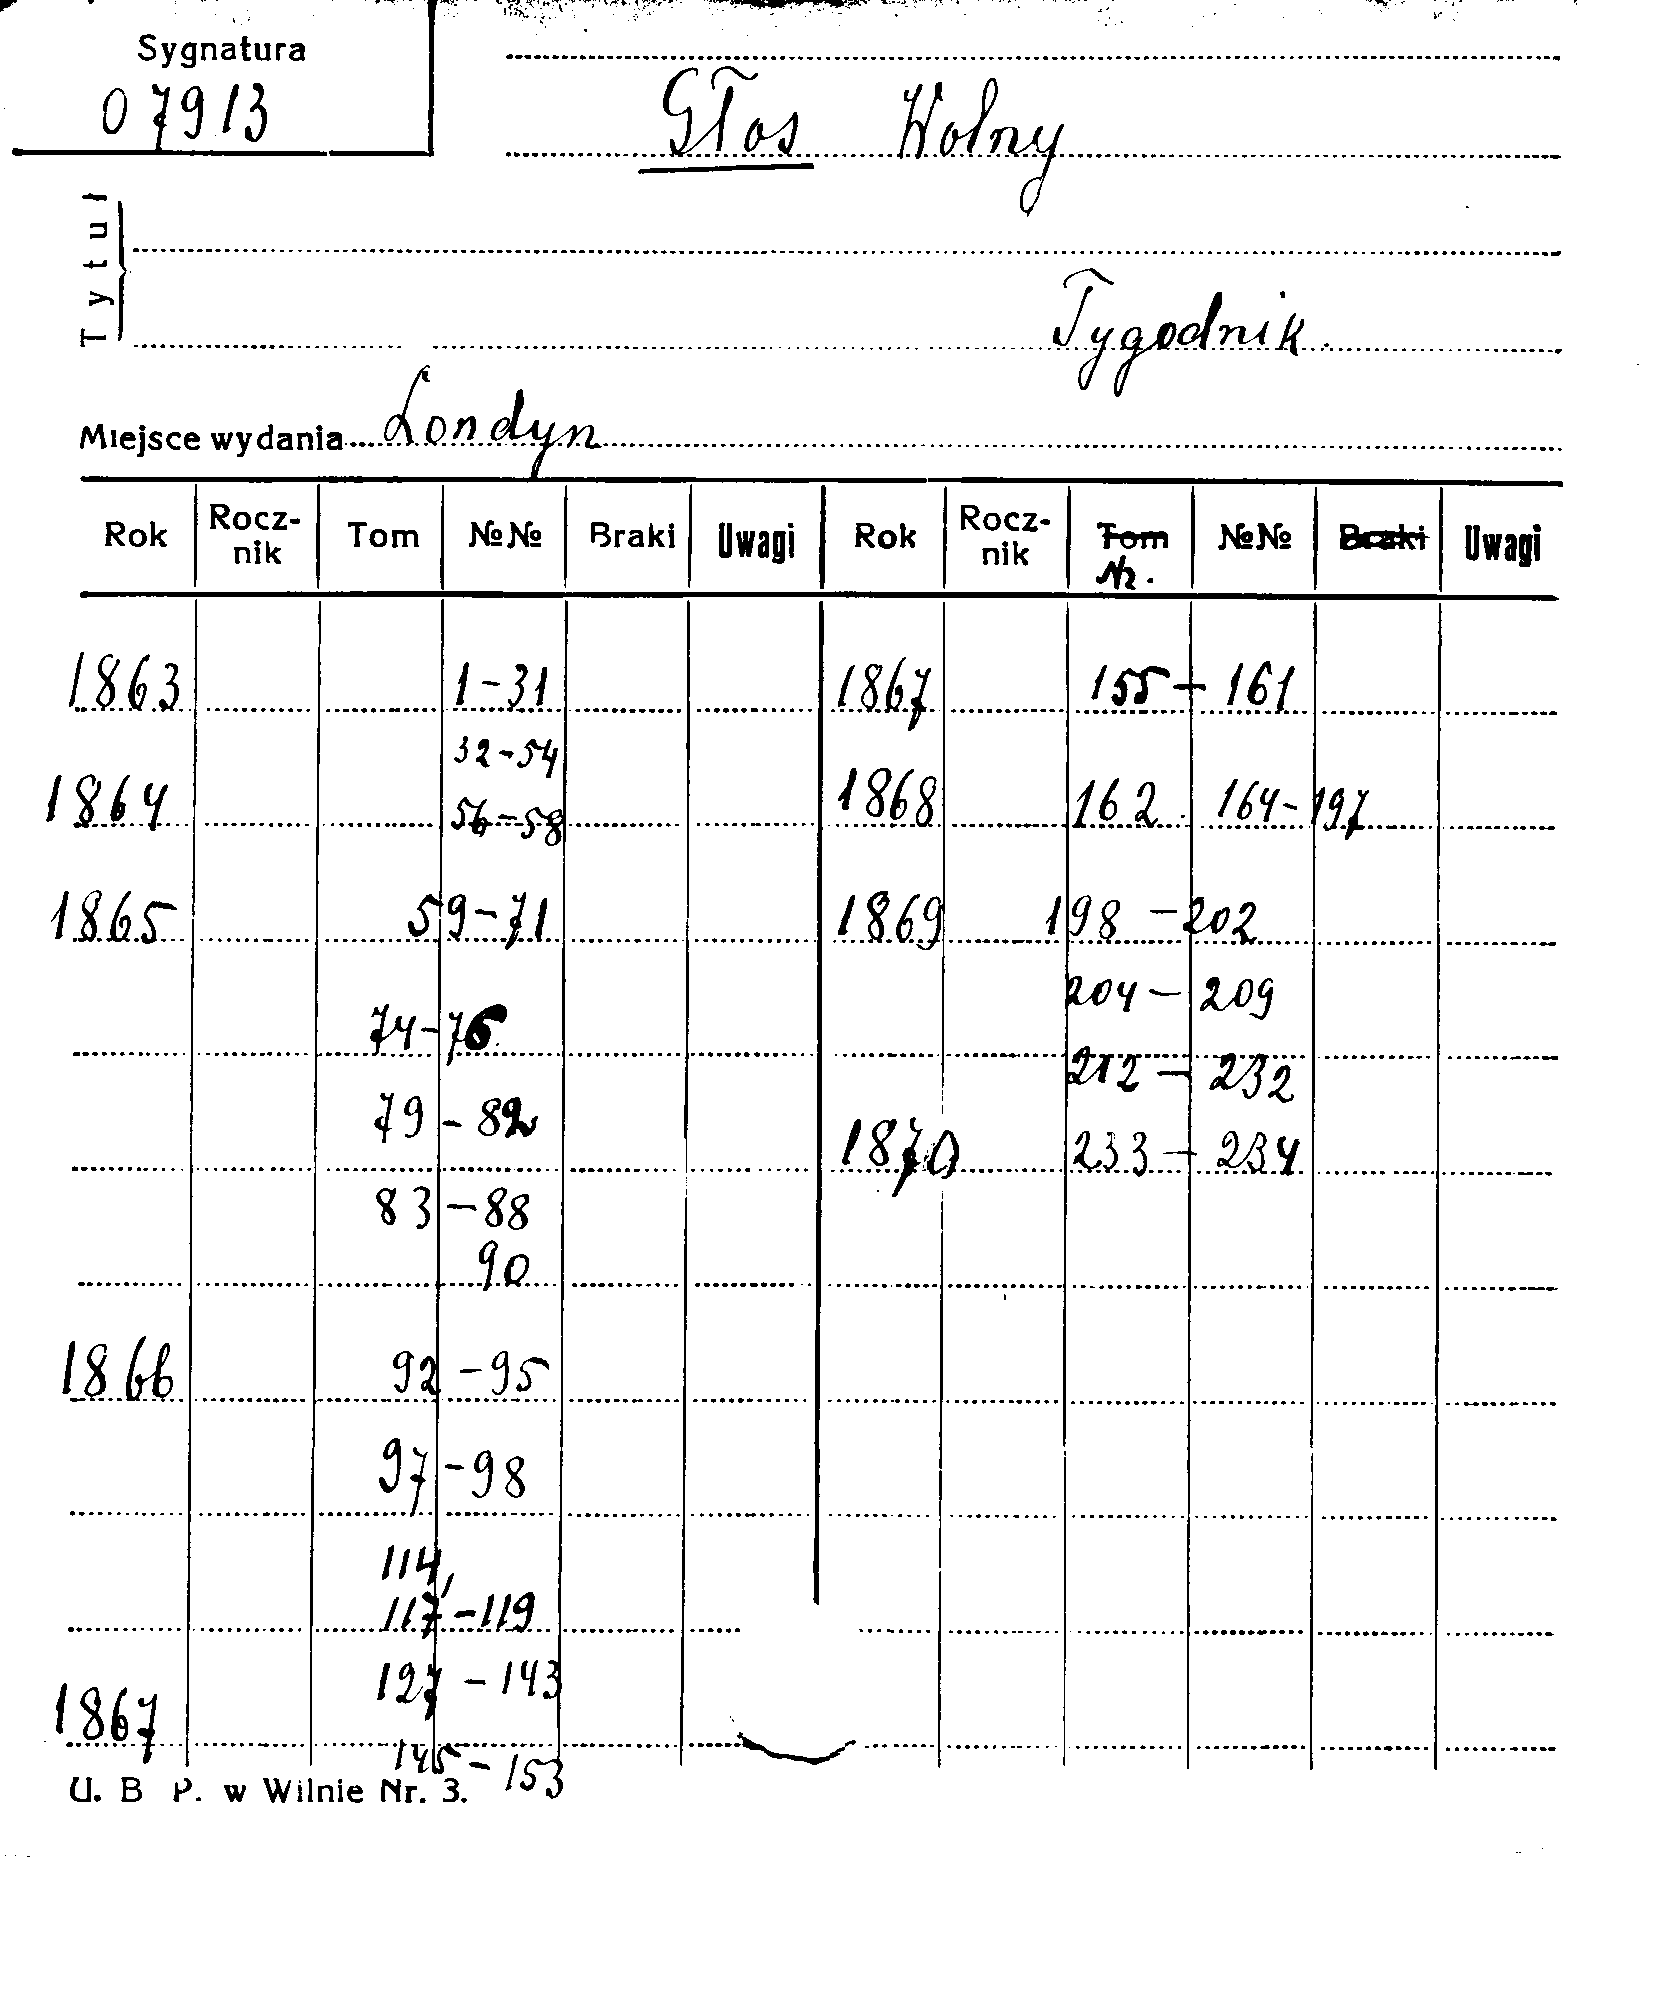 Sygnatura
07913
Głos Wolny
Tytuł
Tygodnik.
Miejsce wydania Londyn
Rok Rocz-nik Tom №№ Braki Uwagi Rok Rocz-nik Tom №№ Braki Uwagi
Nr.
1863 1-31 1867 155 - 161
32-54
1864 56-58 1868 162. 164-197
1865 59-71 1869 198 - 202
204 - 209
74-76
212 - 232
79 - 82
1870 233 - 234
83 - 88
90
1866 92 - 95
97 - 98
114,
117 - 119
127 - 143
1867
145 - 153
U. B P. w Wilnie Nr. 3.